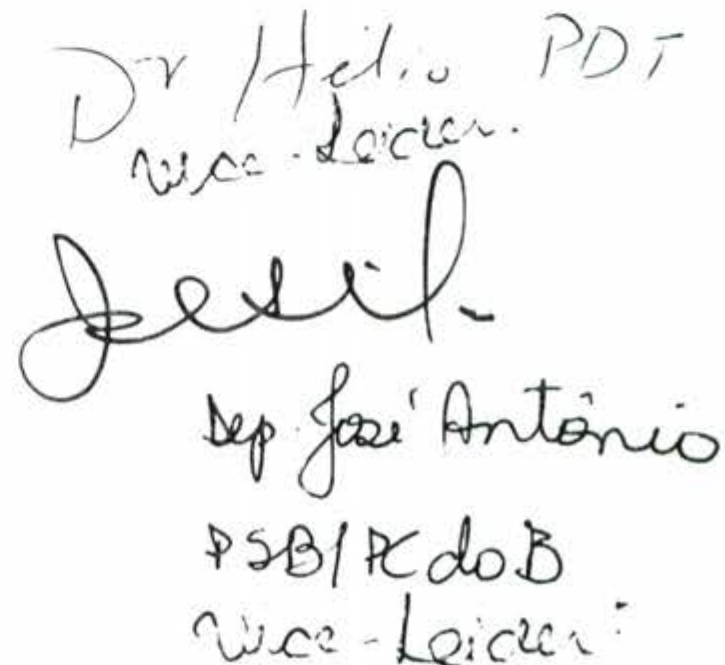 Dr Hélio PDT
Vice-Leider.
Dep. José Antônio
PSB/PCdoB
Vice-Leider